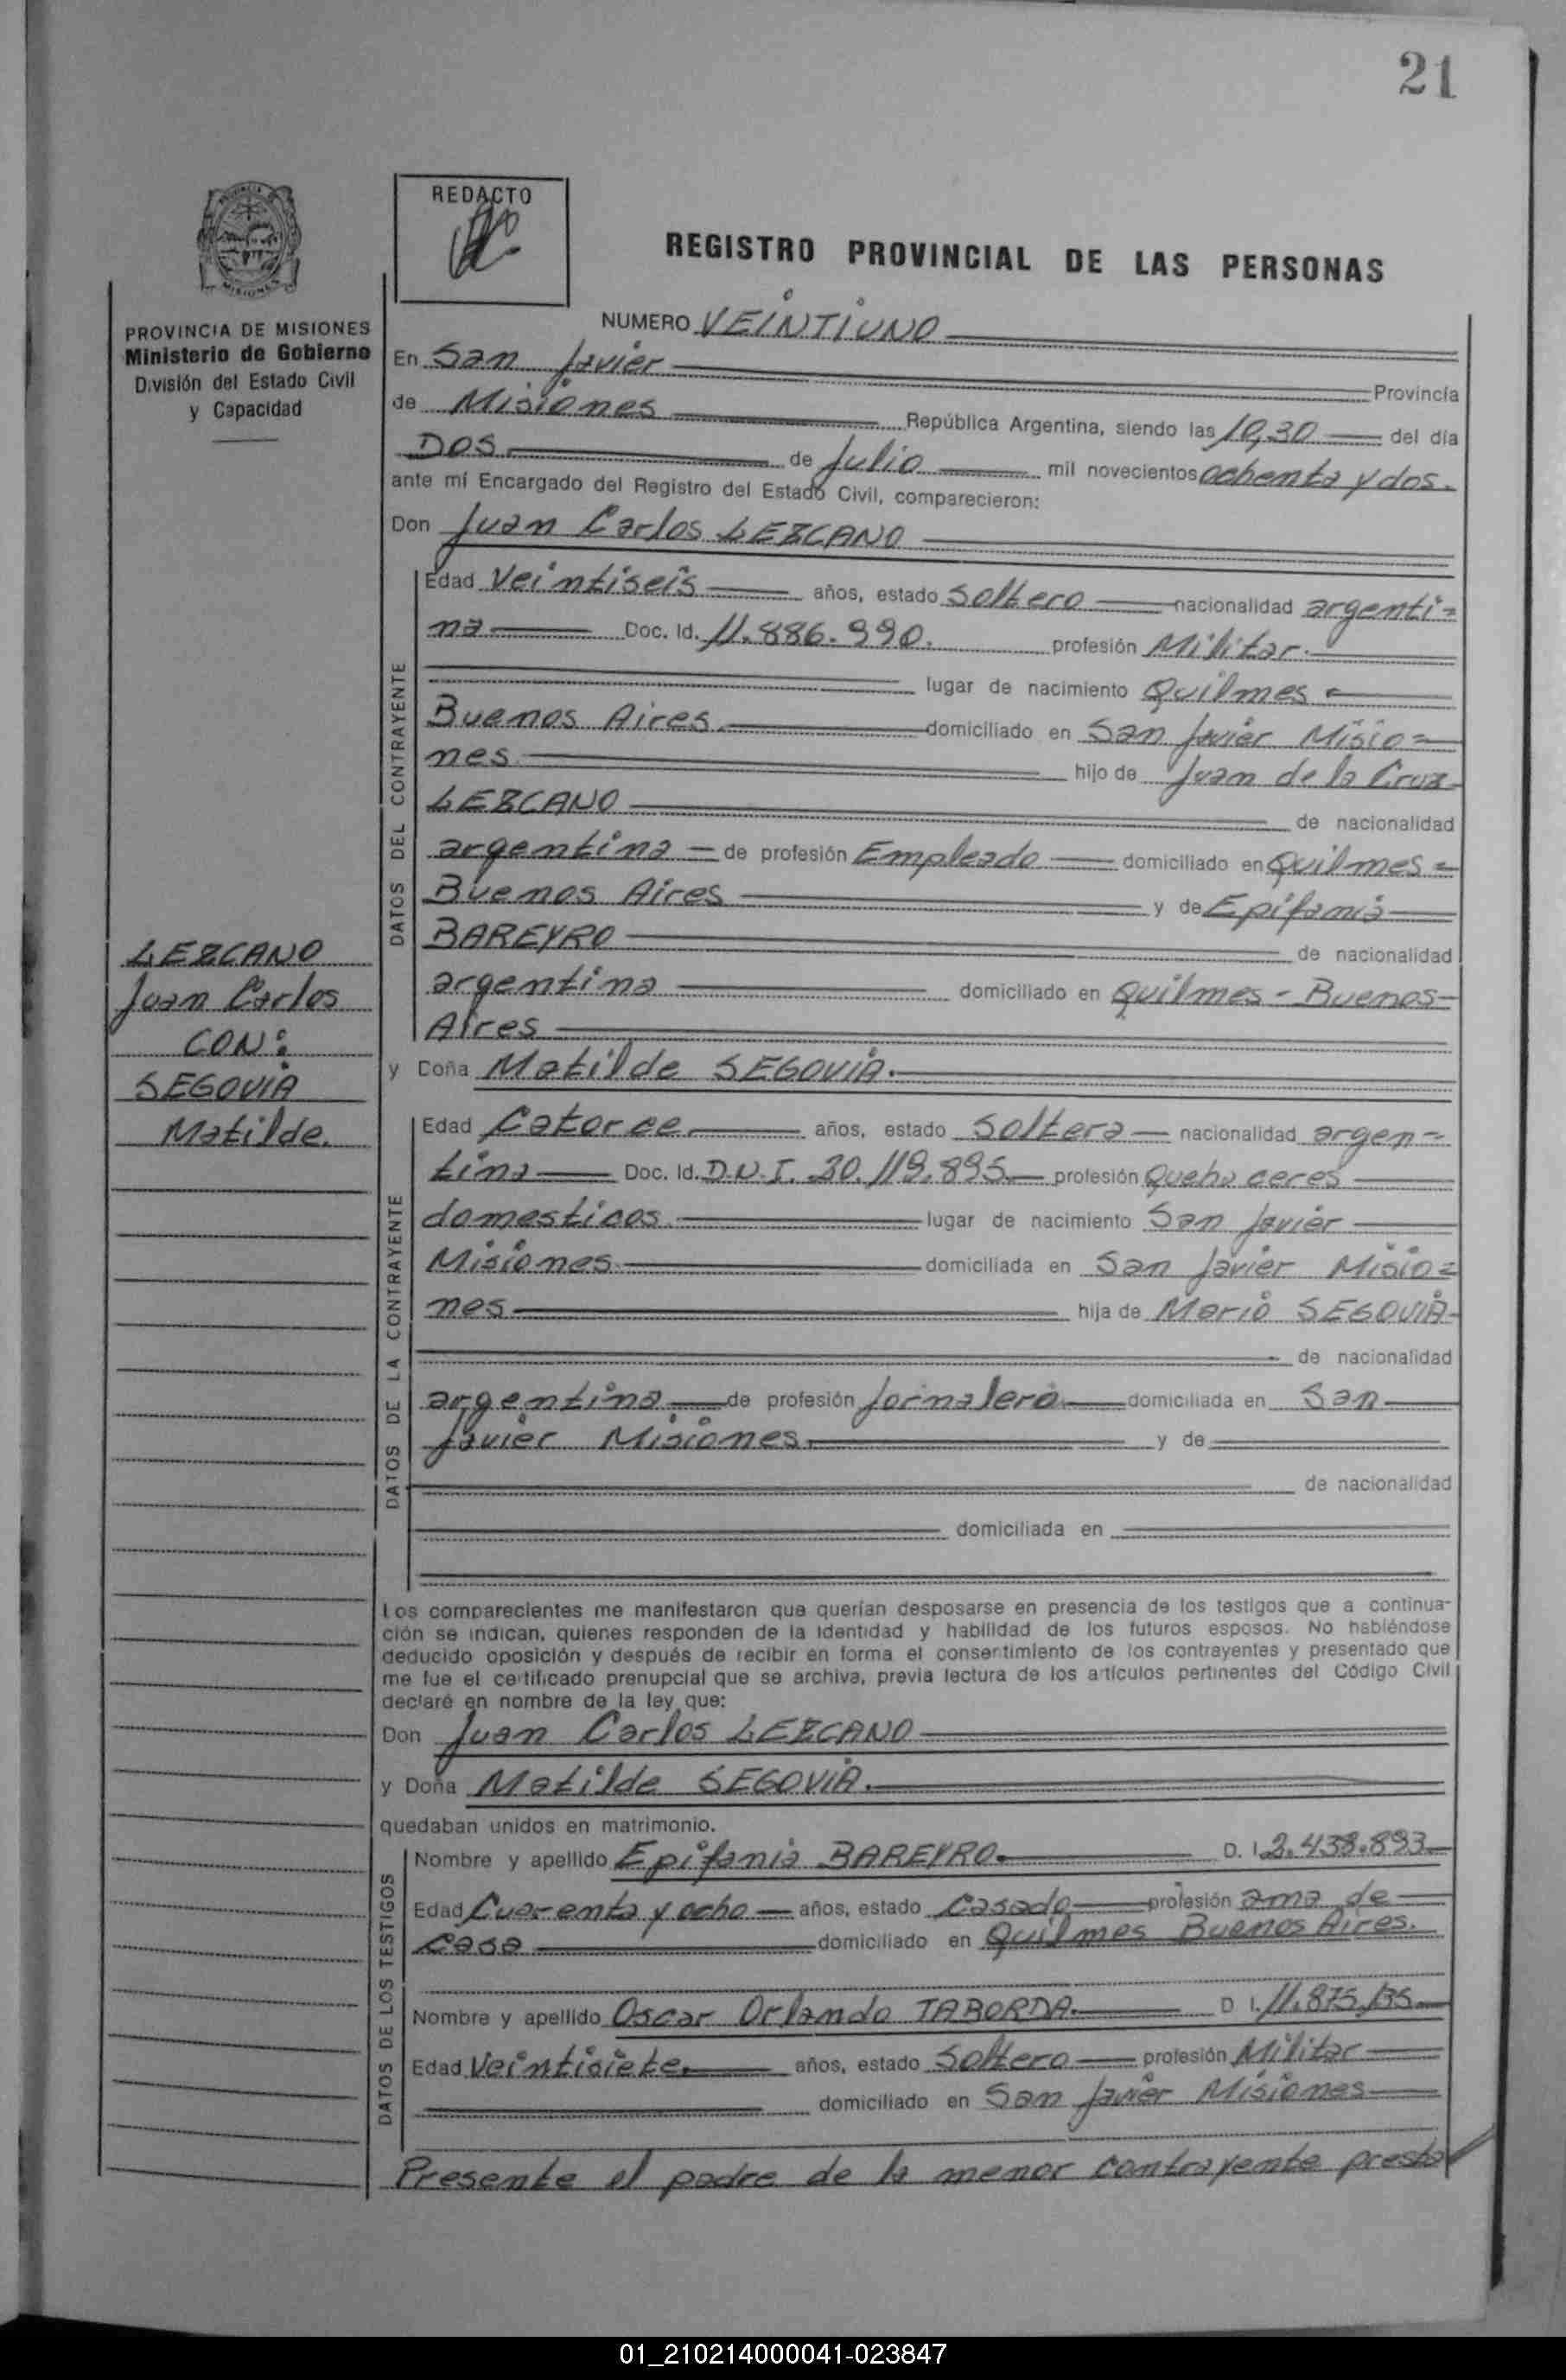 21
REDACTO
REGISTRO PROVINCIAL DE LAS PERSONAS
PROVINCIA DE MISIONES
Ministerio de Gobierno
División del Estado Civil
y Capacidad
NUMERO VEINTIUNO
En San Javier Provincia
de Misiones República Argentina, siendo las 10,30 del día
DOS de Julio mil novecientos ochenta y dos.
ante mí Encargado del Registro del Estado Civil, comparecieron:
Don Juan Carlos LEZCANO
DATOS DEL CONTRAYENTE
Edad Veintiseis años, estado Soltero nacionalidad argenti=
na Doc. Id. 11.886.990. profesión Militar.
lugar de nacimiento Quilmes =
Buenos Aires. domiciliado en San Javier Misio=
nes. hijo de Juan de la Cruz
LEZCANO de nacionalidad
argentina de profesión Empleado domiciliado en Quilmes =
Buenos Aires y de Epifania
BAREYRO de nacionalidad
argentina domiciliado en Quilmes - Buenos
Aires
LEZCANO
Juan Carlos
CON:
SEGOVIA
Matilde.
y Doña Matilde SEGOVIA.
DATOS DE LA CONTRAYENTE
Edad Catorce. años, estado Soltera nacionalidad argen=
tina Doc. Id. D.N.I. 20.119.895 profesión Quehaceres
domesticos. lugar de nacimiento San Javier
Misiones. domiciliada en San Javier Misio=
nes hija de Mario SEGOVIA
de nacionalidad
argentina de profesión Jornalero domiciliada en San
Javier Misiones. y de
de nacionalidad
domiciliada en
Los comparecientes me manifestaron que querían desposarse en presencia de los testigos que a continua-
ción se indican, quienes responden de la identidad y habilidad de los futuros esposos. No habiéndose
deducido oposición y después de recibir en forma el consentimiento de los contrayentes y presentado que
me fue el certificado prenupcial que se archiva, previa lectura de los artículos pertinentes del Código Civil
declaré en nombre de la ley que:
Don Juan Carlos LEZCANO
y Doña Matilde SEGOVIA.
quedaban unidos en matrimonio.
DATOS DE LOS TESTIGOS
Nombre y apellido Epifania BAREYRO. D. I. 2.438.893
Edad Cuarenta y ocho años, estado Casada profesión ama de
casa domiciliado en Quilmes Buenos Aires.
Nombre y apellido Oscar Orlando TABORDA. D. I. 11.875.135
Edad Veintisiete. años, estado Soltero profesión Militar
domiciliado en San Javier Misiones
Presente el padre de la menor contrayente presta
01_210214000041-023847